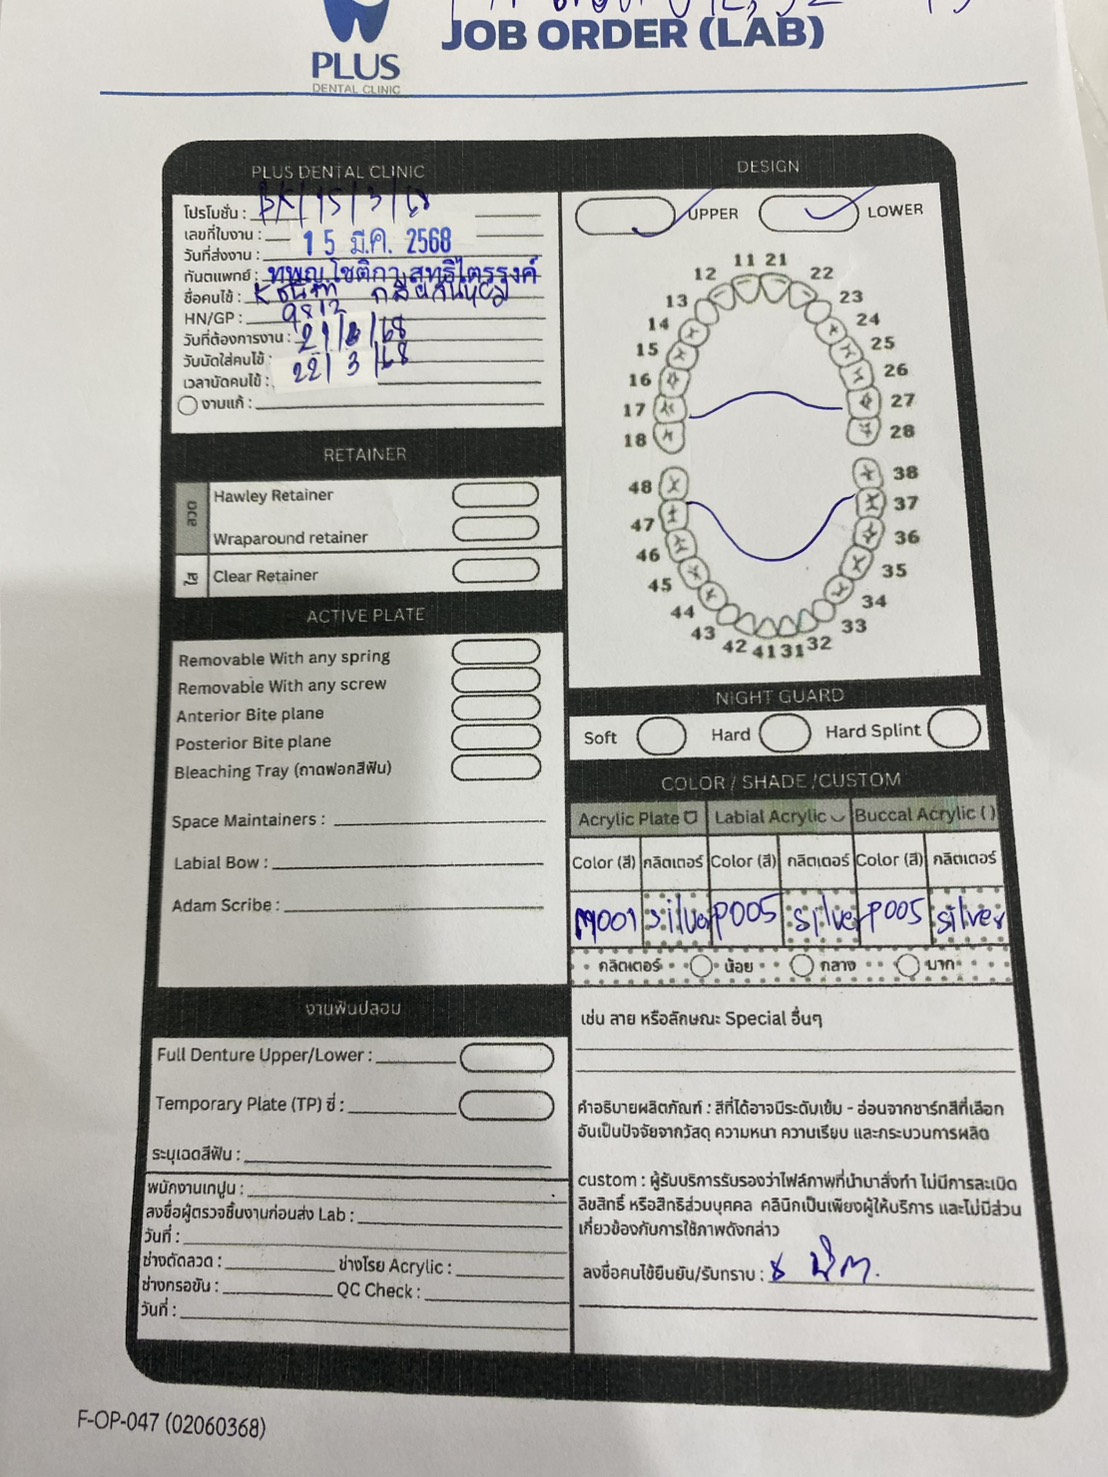 JOB ORDER (LAB)
PLUS
DENTAL CLINIC
PLUS DENTAL CLINIC
โปรโมชั่น : BK/15/3/68
เลขที่ใบงาน :
วันที่ส่งงาน : 15 มี.ค. 2568
ทันตแพทย์ : ทพญ.โชติกา สุทธิไตรรงค์
ชื่อคนไข้ :
HN/GP : 9812
วันที่ต้องการงาน : 21/3/68
วันนัดใส่คนไข้ : 22/3/68
เวลานัดคนไข้ :
งานแก้ :
RETAINER
ลวด
Hawley Retainer
Wraparound retainer
ใส
Clear Retainer
ACTIVE PLATE
Removable With any spring
Removable With any screw
Anterior Bite plane
Posterior Bite plane
Bleaching Tray (ถาดฟอกสีฟัน)
Space Maintainers :
Labial Bow :
Adam Scribe :
งานฟันปลอม
Full Denture Upper/Lower :
Temporary Plate (TP) ซี่ :
ระบุเฉดสีฟัน :
พนักงานเทปูน :
ลงชื่อผู้ตรวจชิ้นงานก่อนส่ง Lab :
วันที่ :
ช่างดัดลวด : ช่างโรย Acrylic :
ช่างกรอขัน : QC Check :
วันที่ :
DESIGN
UPPER LOWER
11 21
12 22
13 23
14 24
15 25
16 26
17 27
18 28
48 38
47 37
46 36
45 35
44 34
43 33
42 41 31 32
NIGHT GUARD
Soft Hard Hard Splint
COLOR / SHADE /CUSTOM
Acrylic Plate Labial Acrylic Buccal Acrylic ( )
Color (สี) กลิตเตอร์ Color (สี) กลิตเตอร์ Color (สี) กลิตเตอร์
M001 silver P005 silver P005 silver
กลิตเตอร์ น้อย กลาง มาก
เช่น ลาย หรือลักษณะ Special อื่นๆ
คำอธิบายผลิตภัณฑ์ : สีที่ได้อาจมีระดับเข้ม - อ่อนจากชาร์ทสีที่เลือก
อันเป็นปัจจัยจากวัสดุ ความหนา ความเรียบ และกระบวนการผลิต
custom : ผู้รับบริการรับรองว่าไฟล์ภาพที่นำมาสั่งทำ ไม่มีการละเมิด
ลิขสิทธิ์ หรือสิทธิส่วนบุคคล คลินิกเป็นเพียงผู้ให้บริการ และไม่มีส่วน
เกี่ยวข้องกับการใช้ภาพดังกล่าว
ลงชื่อคนไข้ยืนยัน/รับทราบ :
F-OP-047 (02060368)